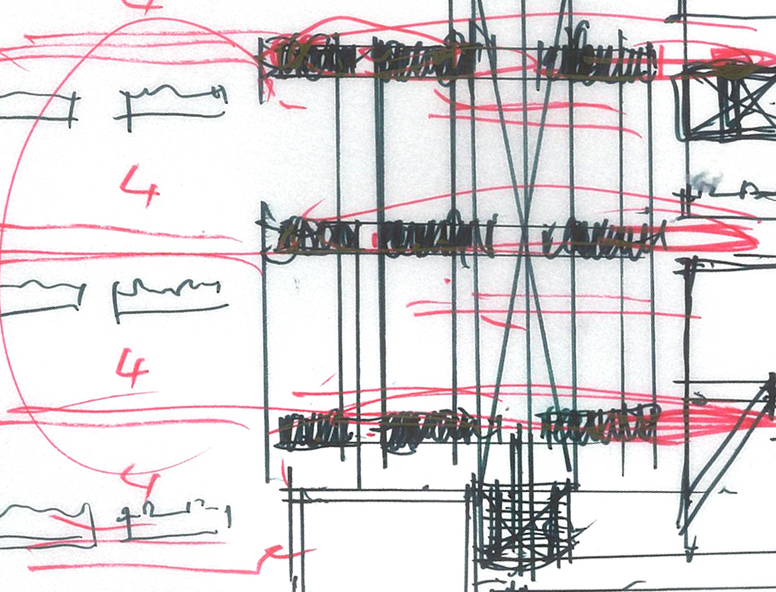 4
4
4
4